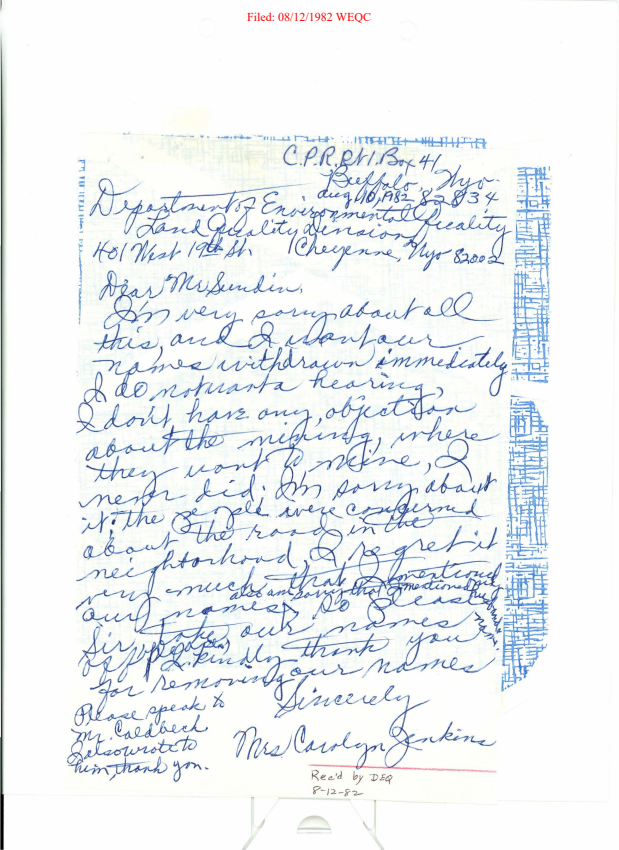 Filed: 08/12/1982 WEQC
C.P.R. Rt 1. Box 41
Buffalo, Wyo.
Aug, 10, 1982 82834
Department of Environmental Quality
Land Quality Division
401 West 19th St. Cheyenne, Wyo 82002
Dear Mr Sundin.
I'm very sorry about all
this, and I want our
names withdrawn immediately
I do not want a hearing,
I don't have any, objection
about the mining, where
they want to mine, I
never did; I'm sorry about
it; the people were concerned
about the road in the
neighborhood, I regret it
very much that I mentioned
also am sorry that I mentioned my husbands name.
our names, so Please
Sir, take our names
off
I kindly thank you
for removing our names
Sincerely
Please speak to
Mr. Caldbeck
I also wrote to
him, thank you.
Mrs Carolyn Jenkins
Rec'd by DEQ
8-12-82